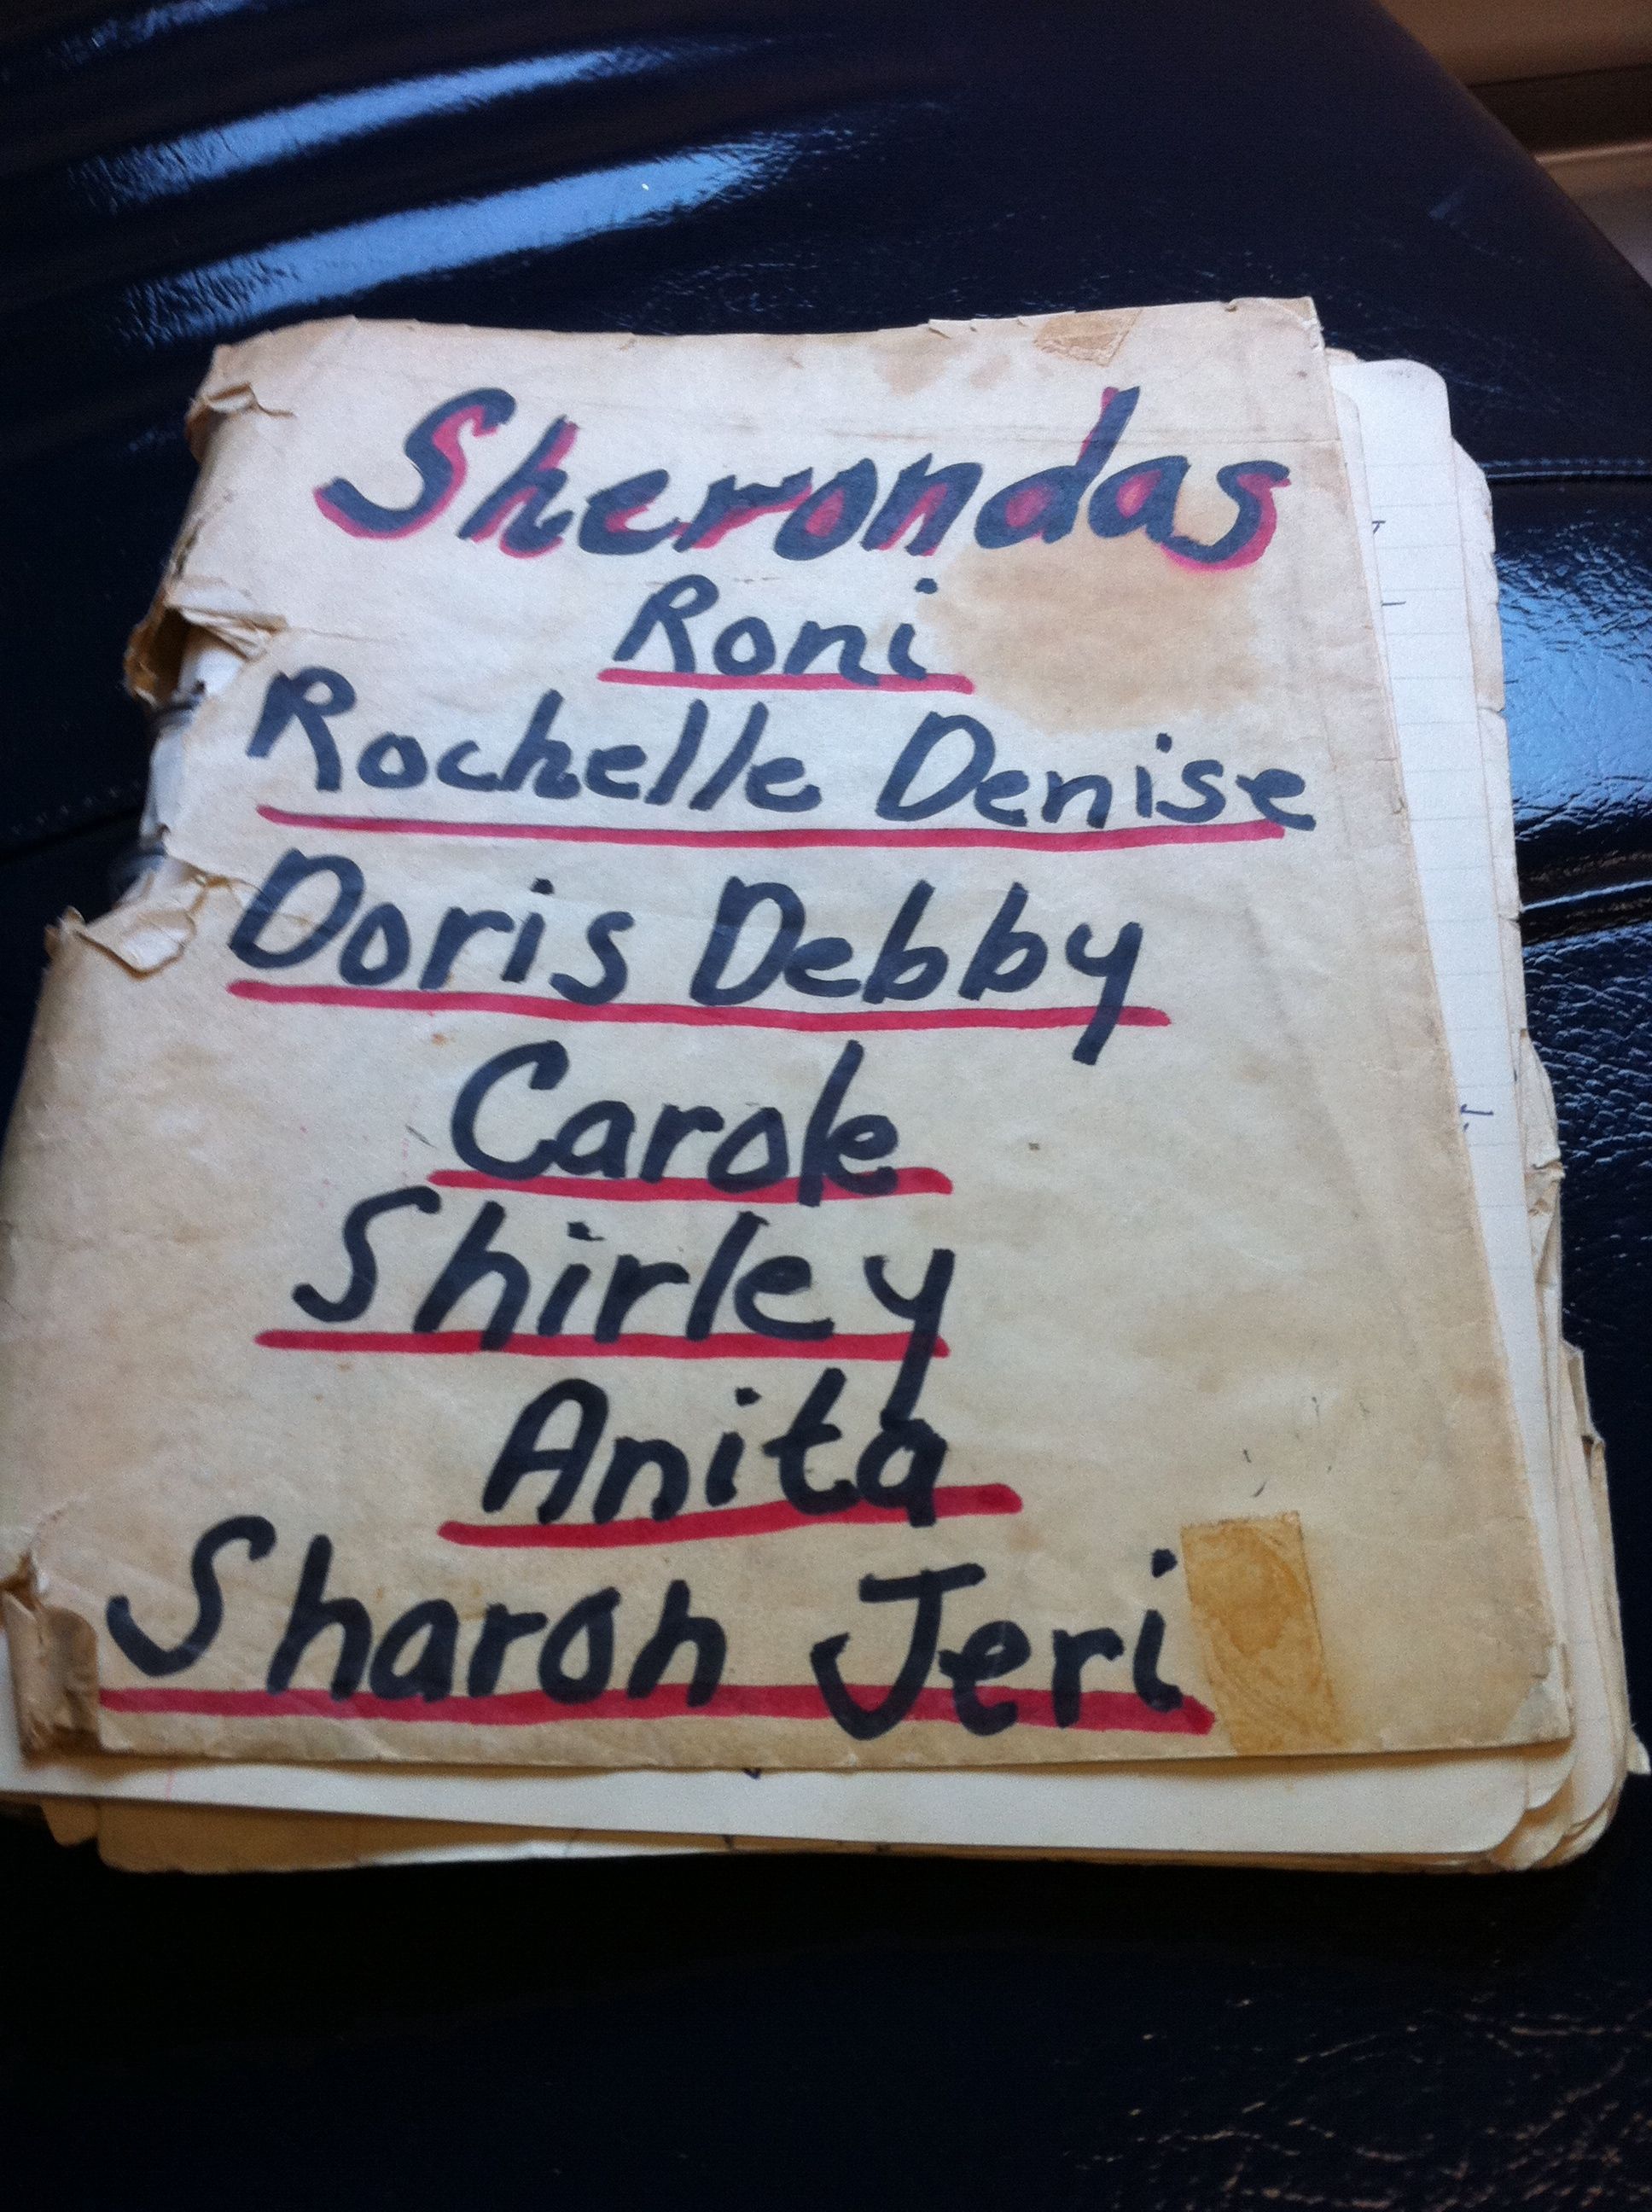 Sherondas
Roni
Rochelle Denise
Doris Debby
Carole
Shirley
Anita
Sharon Jeri